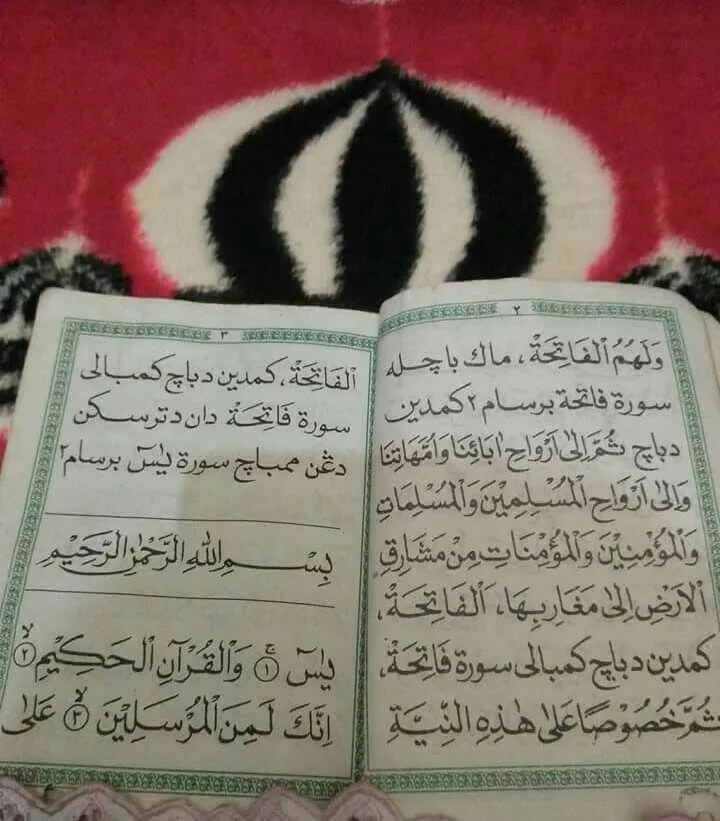 ٢
وَلَهُمُ الْفَاتِحَةْ، ماك باچله
سورة فاتحة برسام٢ كمدين
دباچ ثُمَّ اِلىٰ اَرْوَاحِ اٰبَائِنَا وَاُمَّهَاتِنَا
وَاِلىٰ اَرْوَاحِ الْمُسْلِمِيْنَ وَالْمُسْلِمَاتِ
وَالْمُؤْمِنِيْنَ وَالْمُؤْمِنَاتِ مِنْ مَشَارِقِ
الْاَرْضِ اِلىٰ مَغَارِبِهَا، اَلْفَاتِحَةْ،
كمدين دباچ كمبالى سورة فَاتِحَةْ،
ثُمَّ خُصُوْصًا عَلىٰ هٰذِهِ النِّيَّةِ
٣
الْفَاتِحَةْ، كمدين دباچ كمبالى
سورة فَاتِحَةْ دان دترسكن
دڠن ممباچ سورة يٰسٓ برسام٢
بِسْمِ اللهِ الرَّحْمٰنِ الرَّحِيْمِ
يٰسٓ ۚ ﴿١﴾ وَالْقُرْآنِ الْحَكِيْمِ ۙ ﴿٢﴾
اِنَّكَ لَمِنَ الْمُرْسَلِيْنَ ۙ ﴿٣﴾ عَلىٰ